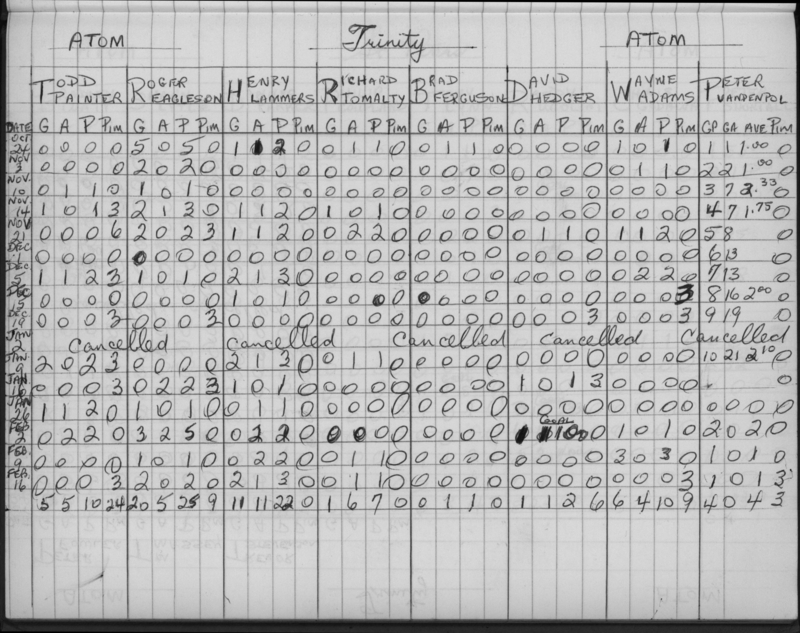 ATOM Trinity ATOM
TODD ROGER HENRY RICHARD BRAD DAVID WAYNE PETER
PAINTER EAGLESON LAMMERS TOMALTY FERGUSON HEDGER ADAMS VANDENPOL
DATE G A P Pim G A P Pim G A P Pim G A P Pim G A P Pim G A P Pim G A P Pim GP GA AVE Pim
OCT 24 0 0 0 0 5 0 5 0 1 1 2 0 0 1 1 0 0 1 1 0 0 0 0 0 1 0 1 0 1 1 1.00
NOV 3 0 0 0 0 2 0 2 0 0 0 0 0 0 0 0 0 0 0 0 0 0 0 0 0 0 1 1 0 2 2 1.00
NOV. 10 0 1 1 0 1 0 1 0 0 0 0 0 0 0 0 0 0 0 0 0 0 0 0 0 0 0 0 0 3 7 2.33
NOV. 14 1 0 1 3 2 1 3 0 1 1 2 0 1 0 1 0 0 0 0 0 0 0 0 0 0 0 0 0 4 7 1.75 0
NOV 21 0 0 0 6 2 0 2 3 1 1 2 0 0 2 2 0 0 0 0 0 0 1 1 0 1 1 2 0 5 8 0
DEC 1 0 0 0 0 0 0 0 0 0 0 0 0 0 0 0 0 0 0 0 0 0 0 0 0 0 0 0 0 6 13 0
DEC 5 1 1 2 3 1 0 1 0 2 1 3 0 0 0 0 0 0 0 0 0 0 0 0 0 0 2 2 0 7 13 0
DEC 15 0 0 0 0 0 0 0 0 1 0 1 0 0 0 0 0 0 0 0 0 0 0 0 0 0 0 0 3 8 16 2.00 0
DEC 19 0 0 0 3 0 0 0 3 0 0 0 0 0 0 0 0 0 0 0 0 0 0 0 3 0 0 0 3 9 19 0
JAN 2 Cancelled Cancelled Cancelled Cancelled Cancelled
JAN. 9 2 0 2 3 0 0 0 0 2 1 3 0 0 1 1 0 0 0 0 0 0 0 0 0 0 0 0 0 10 21 2.10 0
JAN 16 0 0 0 3 0 2 2 3 1 0 1 0 0 0 0 0 0 0 0 0 1 0 1 3 0 0 0 0 0
JAN 26 1 1 2 0 1 0 1 0 0 1 1 0 0 0 0 0 0 0 0 0 0 0 0 0 0 0 0 0 0 0 0 0
GOAL
FEB 2 0 2 2 0 3 2 5 0 0 2 2 0 0 0 0 0 0 0 0 0 1 1 0 0 1 0 1 0 2 0 2 0
FEB. 9 0 0 0 0 1 0 1 0 0 2 2 0 0 1 1 0 0 0 0 0 0 0 0 0 3 0 3 0 1 0 1 0
FEB. 16 0 0 0 3 2 0 2 0 2 1 3 0 0 1 1 0 0 0 0 0 0 0 0 0 0 0 0 3 1 0 1 3
5 5 10 24 20 5 25 9 11 11 22 0 1 6 7 0 0 1 1 0 1 1 2 6 6 4 10 9 4 0 4 3